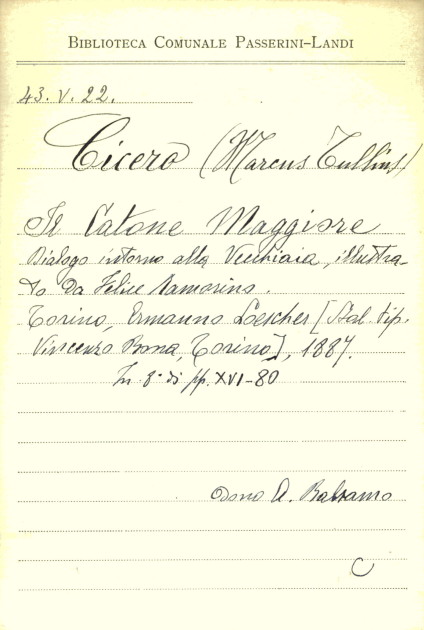 BIBLIOTECA COMUNALE PASSERINI-LANDI
43. V. 22.
Cicero (Marcus Tullius)
Il Catone Maggiore
Dialogo intorno alla Vecchiaia, illustra-
to da Felice Ramorino.
Torino, Ermanno Loescher [Stab. tip.
Vincenzo Bona, Torino], 1887.
In 8° di pp. XVI-80
Dono A. Balsamo
C